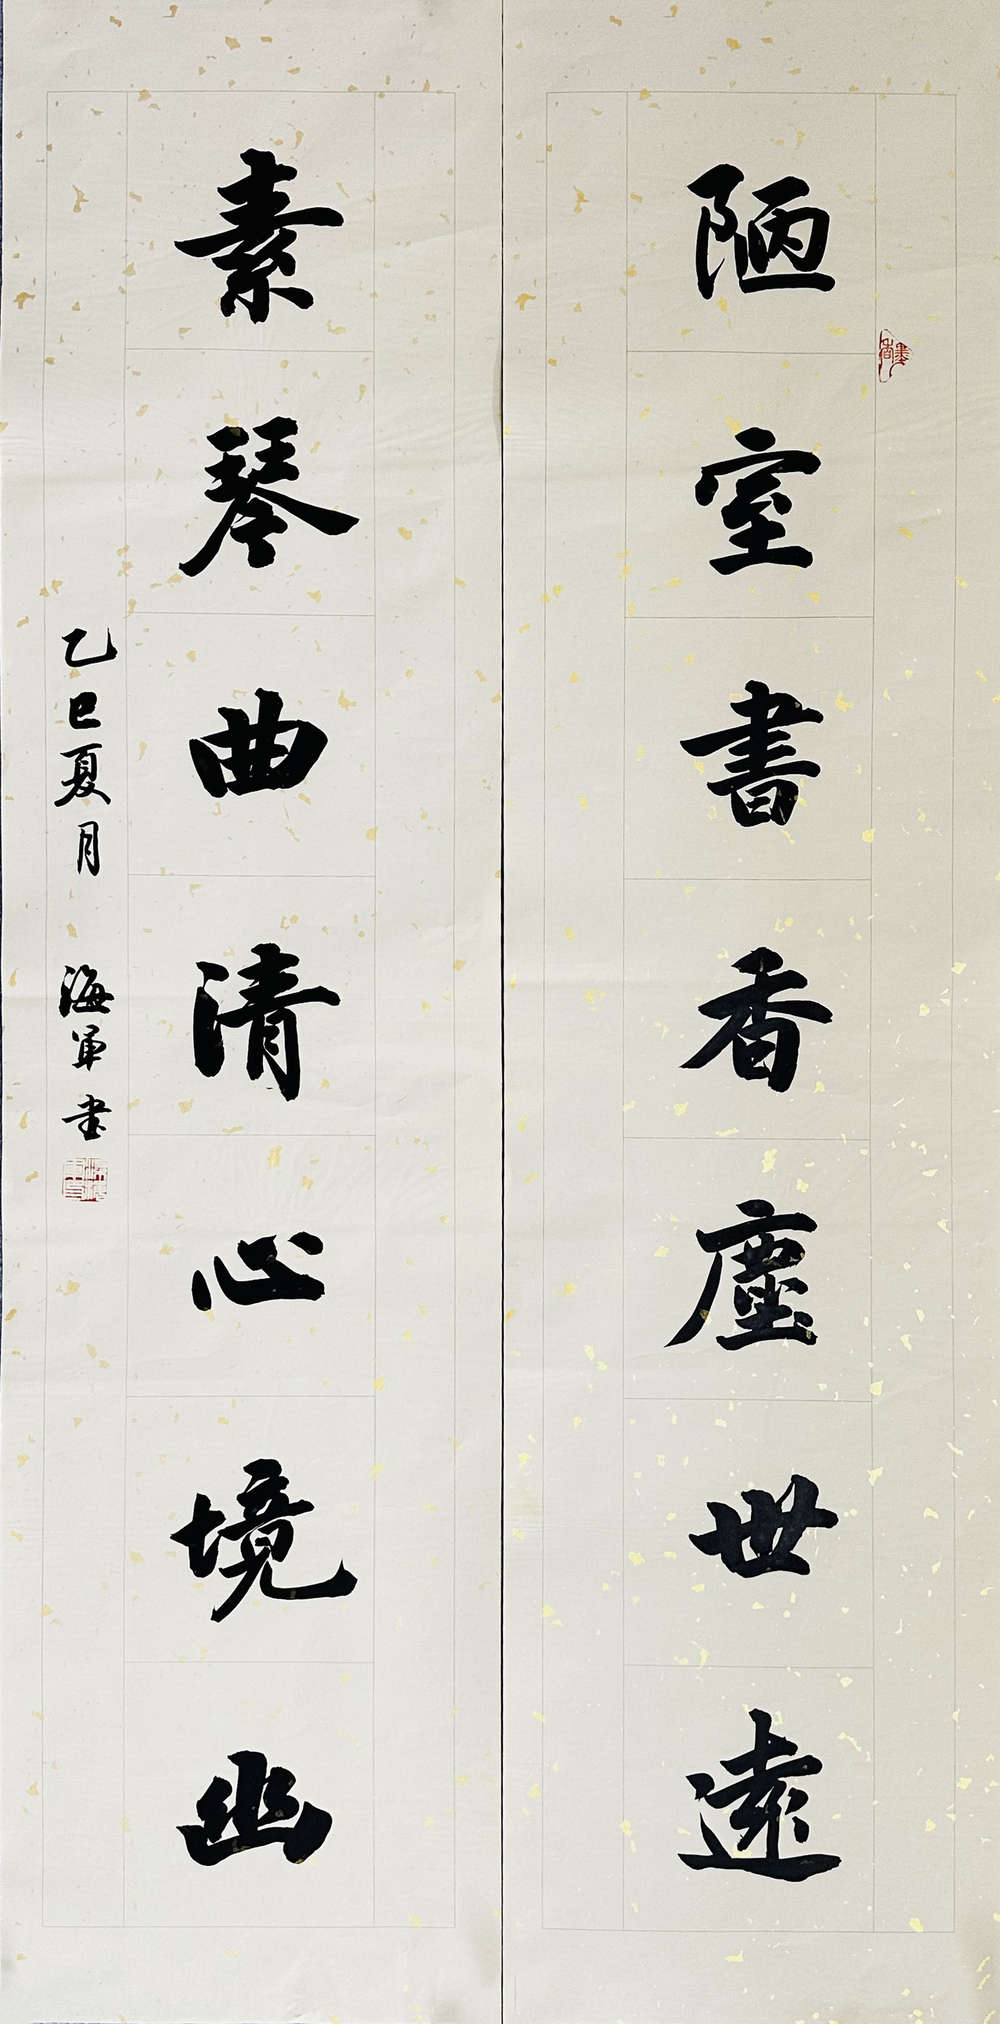 陋室書香塵世遠
素琴曲清心境幽
乙巳夏月 海军书